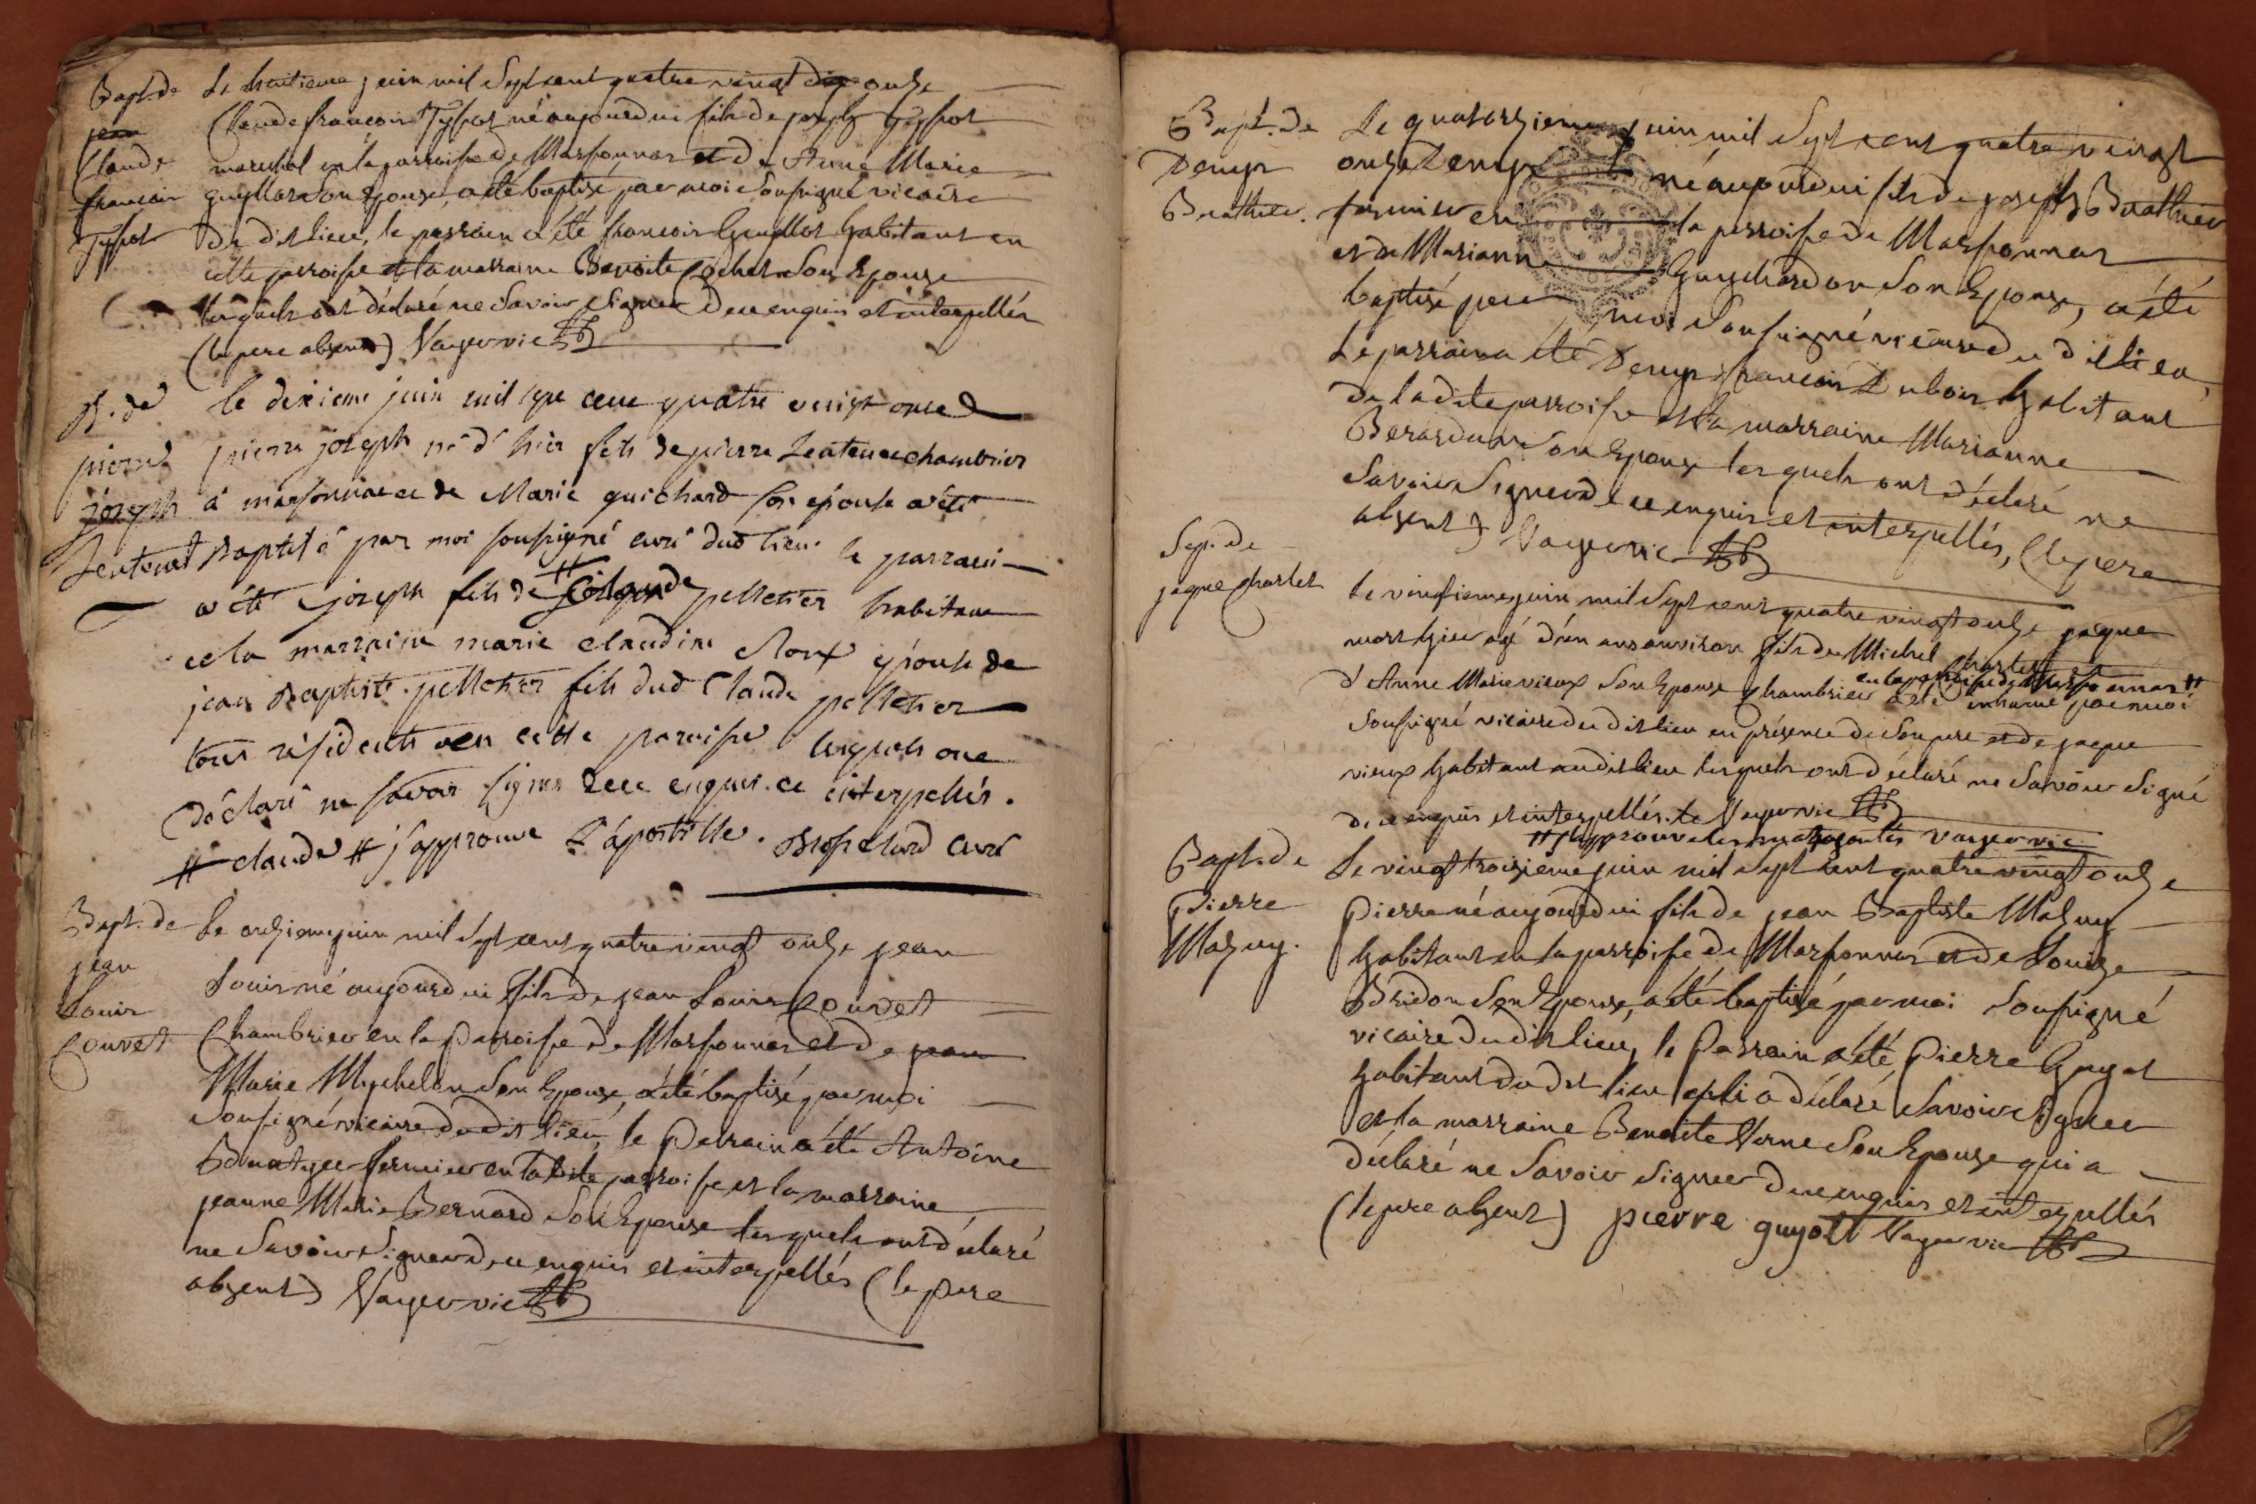 Bapt. de
jean
Claude
françois
Typot
Le huitieme juin mil Sept cent quatre vingt dix onze
Claude françois Typot né aujourdui fils de joseph Typot
marechal en la parroisse de Marsonnas et de Anne Marie
son Epouse, a été baptisé par moi Soussigné vicaire
du dit lieu, le parrain a été françois Guyllot habitant en
cette parroisse et la marraine Benoite Cochet Son Epouse
lesquels ont déclaré ne Savoir Signer de ce enquis et interpellés
(le pere absent) Vayer vic
B. de
pierre
joseph
le dixieme juin mil sept cent quatre vingt onze
pierre joseph né d'hier fils de pierre chambrier
à marsonnas et de Marie guichard son épouse a été
Baptisé par moi soussigné curé dud lieu le parrain
a été joseph fils de pelletier habitant
et la marraine marie claudine Roux épouse de
jean Baptiste pelletier fils dud Claude pelletier
tous résidents en cette paroisse lesquels ont
déclaré ne savoir signer de ce enquis et interpellés.
# claude # j'approuve l'apostille. curé
Bapt. de
jean
Louis
Couvet
Le onzieme juin mil Sept cent quatre vingt onze jean
Louis né aujourdui fils de jean Louis
Chambrier en la Parroisse de Marsonnas et de jean
Marie Mychelon Son Epouse, a été baptisé par moi
Soussigné vicaire du dit lieu, le Parrain a été Antoine
fermier en la dite parroisse et la marraine
jeanne Marie Bernard Son Epouse lesquels ont déclaré
ne Savoir Signer de ce enquis et interpellés (le pere
absent) Vayer vic
Bapt. de
Denys
Buathier.
Le quatorzieme juin mil Sept cent quatre vingt
onze Denys né aujourdui fils de joseph Buathier
fermier en la parroisse de Marsonnas
et de Marianne Guychardon Son Epouse, a été
baptisé par moi Soussigné vicaire du dit lieu,
Le parrain a été Denys françois Dubois habitant
de la dite parroisse et la marraine Marianne
Son Epouse lesquels ont déclaré ne
Savoir Signer de ce enquis et interpellés, (le pere
absent) Vayer vic
Sep. de
jaque Charlet
Le vingtieme juin mil Sept cent quatre vingt onze jaque
mort hier agé d'un an environ fils de Michel Charlet
d'Anne Marie vieux Son Epouse chambrier en la parroisse de Marsonnas # a été inhumé par moi
Soussigné vicaire du dit lieu en présence de Son pere et de jaque
vieux habitant audit lieu lesquels ont déclaré ne Savoir Signé
de ce enquis et interpellés. Vayer vic
# j'approuve les Vayer vic
Bapt. de
Pierre
Mazuy.
Le vingt troisieme juin mil Sept cent quatre vingt onze
Pierre né aujourdui fils de jean Baptiste Mazuy
habitant en la parroisse de Marsonnas et de Louise
Bridon Son Epouse, a été baptisé par moi Soussigné
vicaire du dit lieu, le Parrain a été Pierre Guyot
habitant du dit lieu qui a déclaré Savoir Signer
et la marraine Benoite Verne Son Epouse qui a
déclaré ne Savoir Signer de ce enquis et interpellés
(le pere absent) pierre guyott Vayer vic